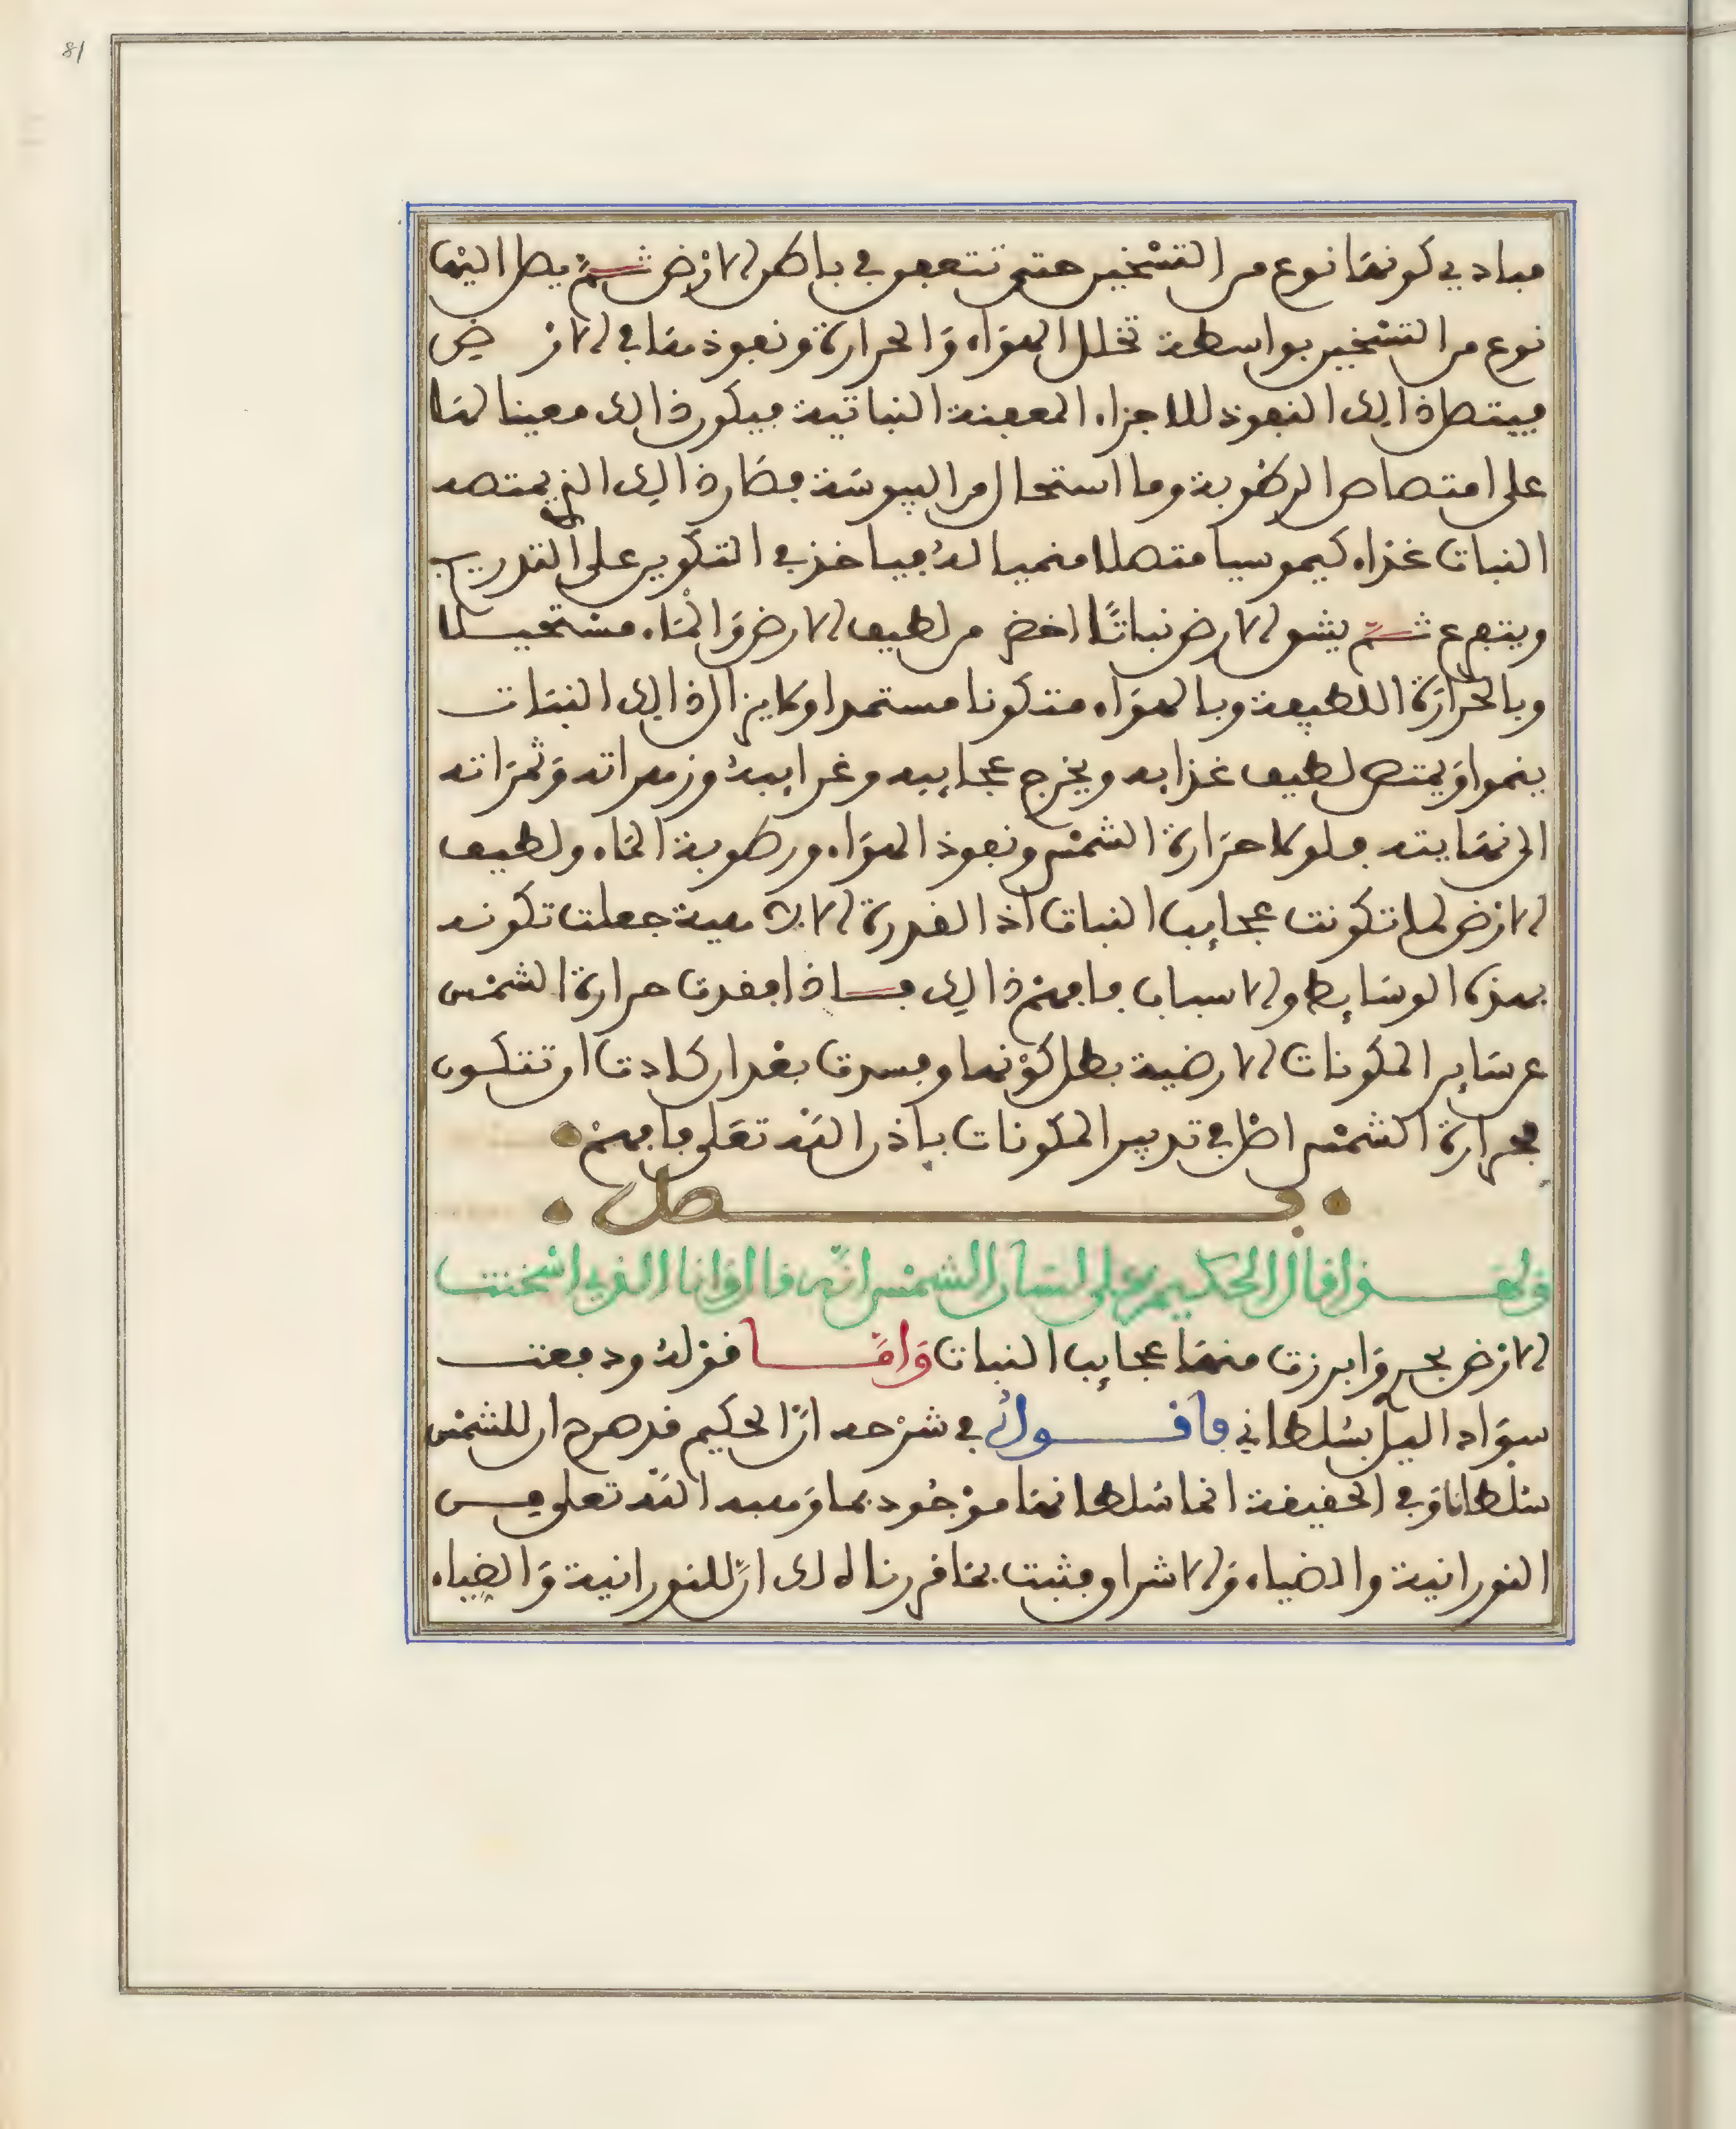 81
مبادي كونها نوع من التسخين حتى تتعفن في باطن الارض ثم يصل اليها
نوع من التسخين بواسطة تخلل الهواء والحرارة ونفوذهما في الارض
فيتصل ذالك النفوذ للاجزاء المعفنة النباتية فيكون ذالك معينا لها
على امتصاص الرطوبة وما استحال من اليبوسة فصار ذالك الذي يمتصه
النبات غذاء كيموسيا متصلا منميا له فياخذ في التكوين على التدريج
ويتفرع ثم يشق الارض نباتا اخضر من لطيف الارض والماء مستحيلا
وبالحرارة اللطيفة وبالهواء متكونا مستمدا ولا يزال ذالك النبات
ينموا ويمتص لطيف غذايه ويخرج عجايبه وغرايبه وزهراته وثمراته
الى نهايته فلولا حرارة الشمس ونفوذ الهواء ورطوبة الماء ولطيف
الارض لما تكونت عجايب النبات اذ القدرة الالهية جعلت تكونه
بهذه الوسايط والاسباب فافهم ذالك فاذا فقدت حرارة الشمس
عن ساير المكونات الارضية بطل كونها وفسدت بعد ان كادت ان تتكون
فحرارة الشمس اصل في تدبير المكونات باذن الله تعلى فافهم
فصل
ولهذا قال الحكيم على لسان الشمس انه قال وانا الذي اسخنت
الارض بحري وابرزت منها عجايب النبات واما قوله ودفعت
سواد اليل بسلطاني فاقول في شرحه ان الحكيم قد صرح ان للشمس
سلطانا وفي الحقيقة انما سلطانها موجود بما وهبه الله تعلى من
النورانية والضياء والاشراق فثبت بما قررنا لك ان للنورانية والضياء